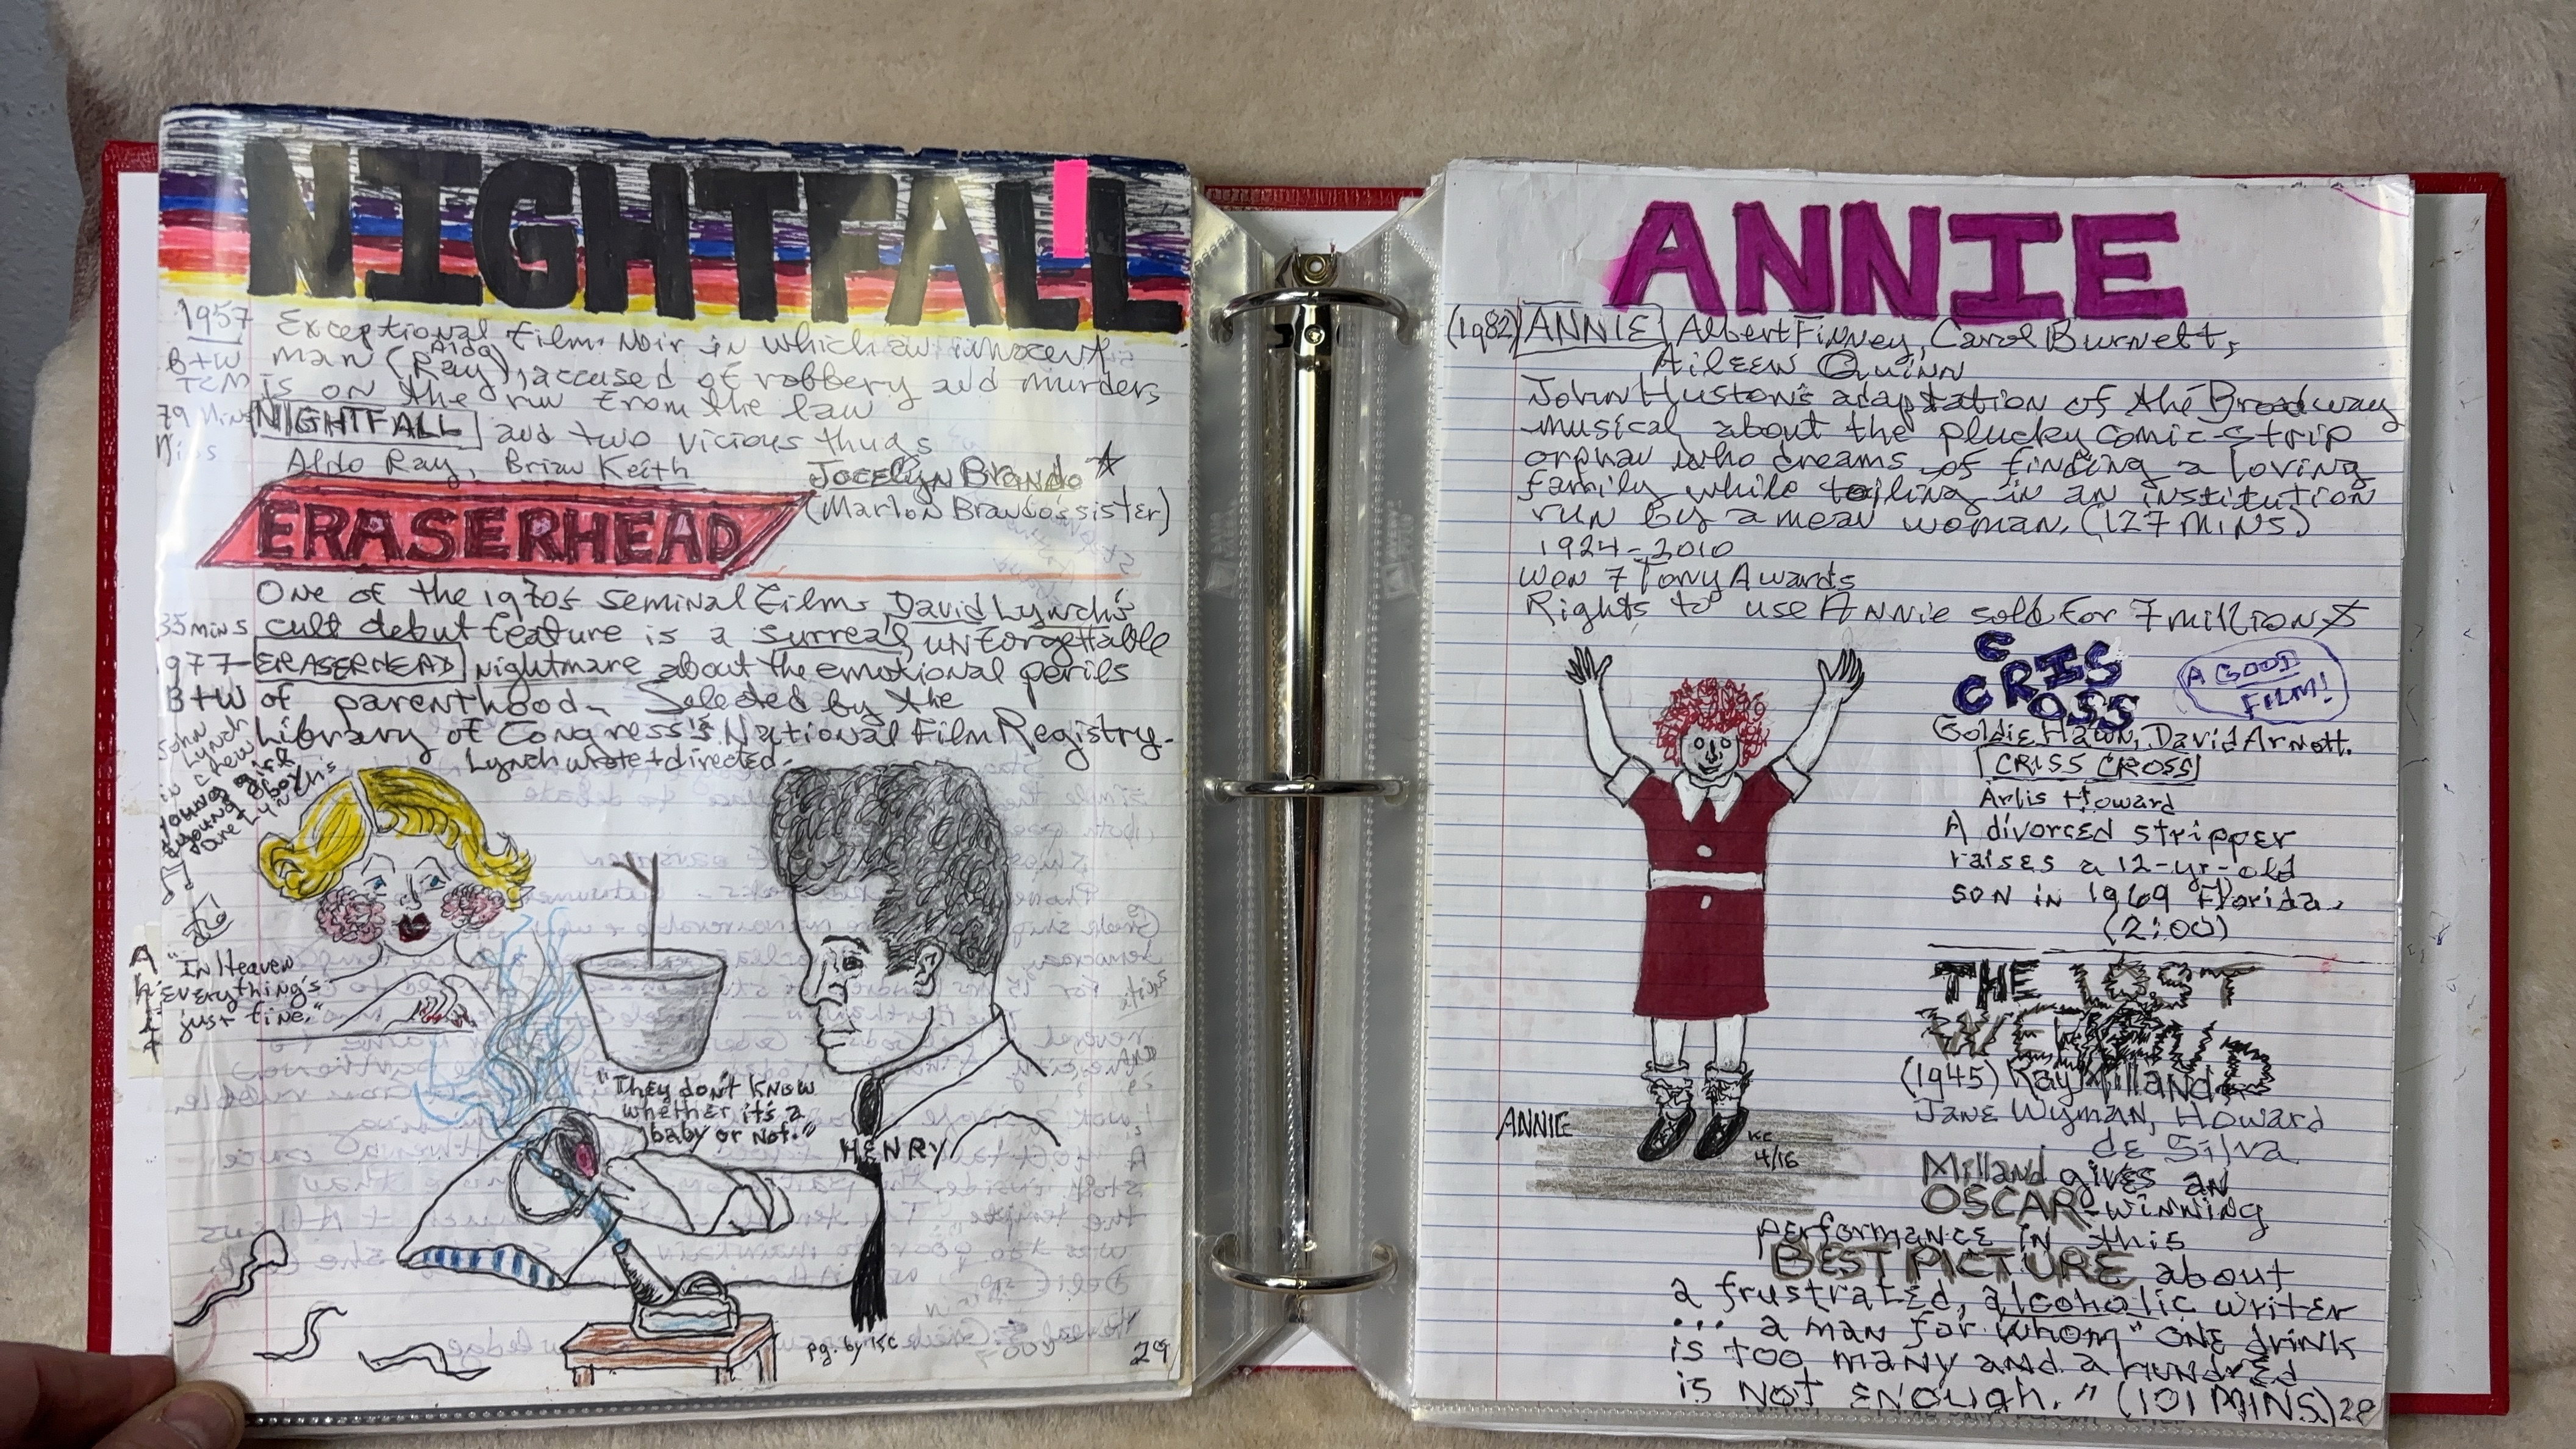 NIGHTFALL
1957
B+W
TCM
79 Mins
Mins
Exceptional Film Noir in which an innocent
man (Aldo Ray), accused of robbery and murders
is on the run from the law
NIGHTFALL and two vicious thugs
Aldo Ray, Brian Keith
Jocelyn Brando ☆
(Marlon Brando's sister)
ERASERHEAD
One of the 1970s seminal films David Lynch's
35 mins cult debut feature is a surreal, unforgettable
1977- ERASERHEAD nightmare about the emotional perils
B+W of parenthood- Selected by the
Library of Congress's National Film Registry.
Lynch wrote + directed.
John Lynch
in crew
young girl
+ young boy
are Lynch's
"In Heaven
everything's
just fine."
"They don't know
whether it's a
baby or not."
HENRY
pg. by KC
29
ANNIE
(1982) ANNIE Albert Finney, Carol Burnett,
Aileen Quinn
John Huston's adaptation of the Broadway
musical about the plucky comic-strip
orphan who dreams of finding a loving
family while toiling in an institution
run by a mean woman. (127 MINS)
1924-2010
Won 7 Tony Awards
Rights to use Annie sold for 7 million $
CRISS
CROSS
A GOOD
FILM!
Goldie Hawn, David Arnott.
CRISS CROSS
Arlis Howard
A divorced stripper
raises a 12-yr-old
son in 1969 Florida.
(2:00)
THE LOST
WEEKEND
(1945) Ray Milland
Jane Wyman, Howard
de Silva
Milland gives an
OSCAR-winning
performance in this
BEST PICTURE about
a frustrated, alcoholic writer
... a man for whom "one drink
is too many and a hundred
is not enough." (101 MINS)
ANNIE
KC
4/16
28